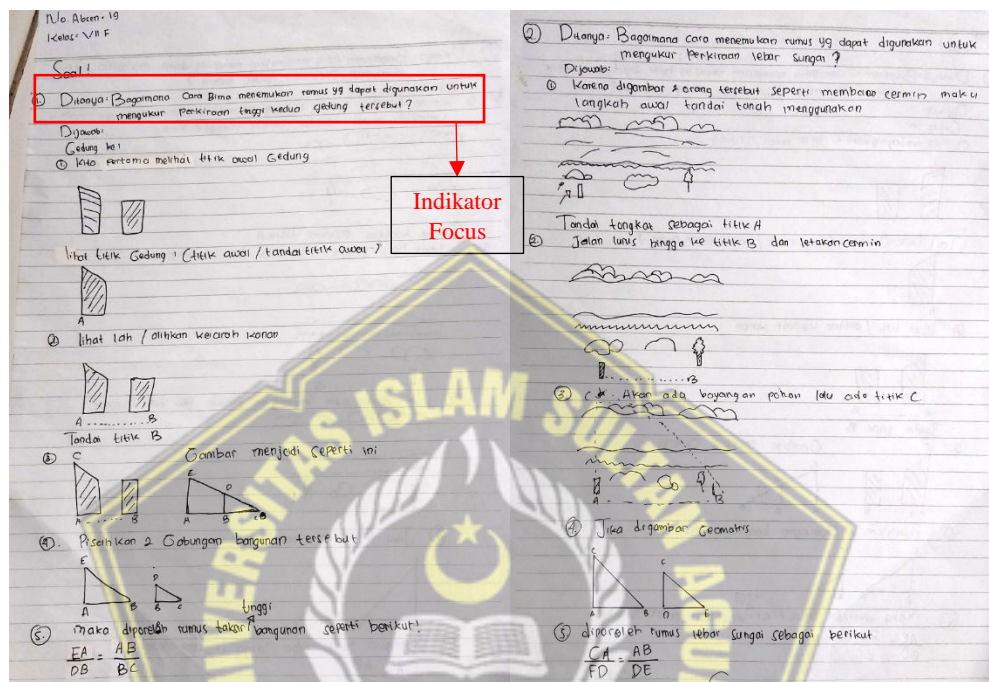 No. Absen = 19
Kelas = VII F
Soal!
① Ditanya: Bagaimana Cara Bima menemukan rumus yg dapat digunakan untuk
mengukur perkiraan tinggi kedua gedung tersebut?
Dijawab:
Gedung ke 1
① Kita pertama melihat titik awal Gedung
lihat titik Gedung 1 (titik awal / tandai titik awal)
A
② lihat lah / alihkan kearah kanan
A B
Tandai titik B
③ Gambar menjadi seperti ini
C
A B
E
D
A B C
④. Pisahkan 2 Gabungan bangunan tersebut
E
D
A B B C
tinggi
⑤. maka diperoleh rumus taksir bangunan seperti berikut!
EA = AB
DB BC
Indikator
Focus
② Ditanya: Bagaimana cara menemukan rumus yg dapat digunakan untuk
mengukur perkiraan lebar sungai?
Dijawab:
① Karena digambar 2 orang tersebut seperti membawa cermin maka
langkah awal tandai tanah menggunakan
Tandai tongkat sebagai titik A
②. Jalan lurus hingga ke titik B dan letakan cermin
B
③ Akan ada bayangan pohon lalu ada titik C
A B
④ Jika digambar Geometris
C
A B
D E
⑤ diperoleh rumus lebar sungai sebagai berikut
CA = AB
FD DE
UNIVERSITAS ISLAM SULTAN AGUN